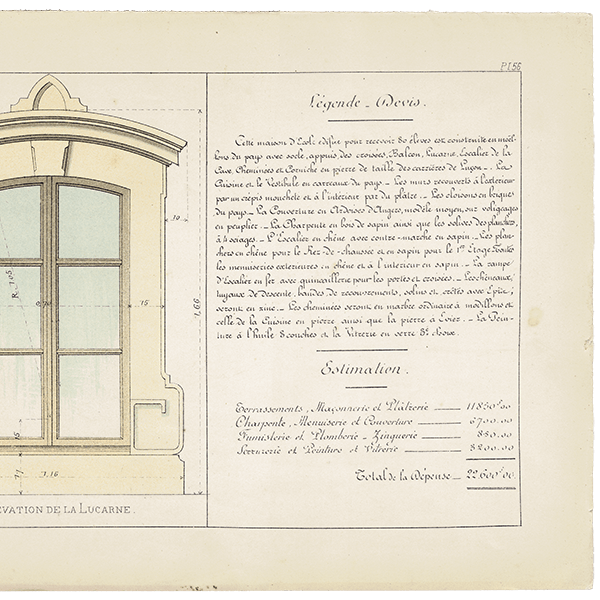 Pl.56
Légende - Devis.
Cette maison d'École édifiée pour recevoir 80 élèves est construite en moël-
lons du pays avec socle, appuis des croisées, Balcon, Lucarne, Escalier de la
Cave, Cheminées et Corniche en pierre de taille des carrières de Luçon _. La
Cuisine et le Vestibule en carreaux du pays _ Les murs recouverts à l'extérieur
par un crépis moucheté et à l'intérieur par du plâtre. _ Les cloisons en briques
du pays _ La Couverture en Ardoises d'Angers, modèle moyen, sur voligeages
en peuplier. _ La Charpente en bois de sapin ainsi que les solives des planchers,
_ L'Escalier en chêne avec contre-marche en sapin _ Les plan-
chers en chêne pour le Rez-de-chaussée et en sapin pour le 1er Etage. Toutes
les menuiseries extérieures en chêne et à l'intérieur en sapin _ La rampe
d'Escalier en fer avec quincaillerie pour les portes et croisées. _ Les chéneaux,
tuyaux de descente, bandes de recouvrements, solins et crêtes avec Epis;
seront en zinc. _ Les cheminées seront en marbre ordinaire à modillons et
celle de la Cuisine en pierre ainsi que la pierre à Evier. _ La Pein-
ture à l'huile 3 couches et la Vitrerie en verre
Estimation.
Terrassements, Maçonnerie et Plâtrerie 11830f.00
Charpente, Menuiserie et Couverture 6700.00
Fumisterie et Plomberie - Zinguerie 880.00
Serrurerie et Peinture et Vitrerie 3200.00
Total de la Dépense _ 22.600f.00
10
R. 1.05
15
1,66
15
17
1,16
ÉVATION DE LA LUCARNE.